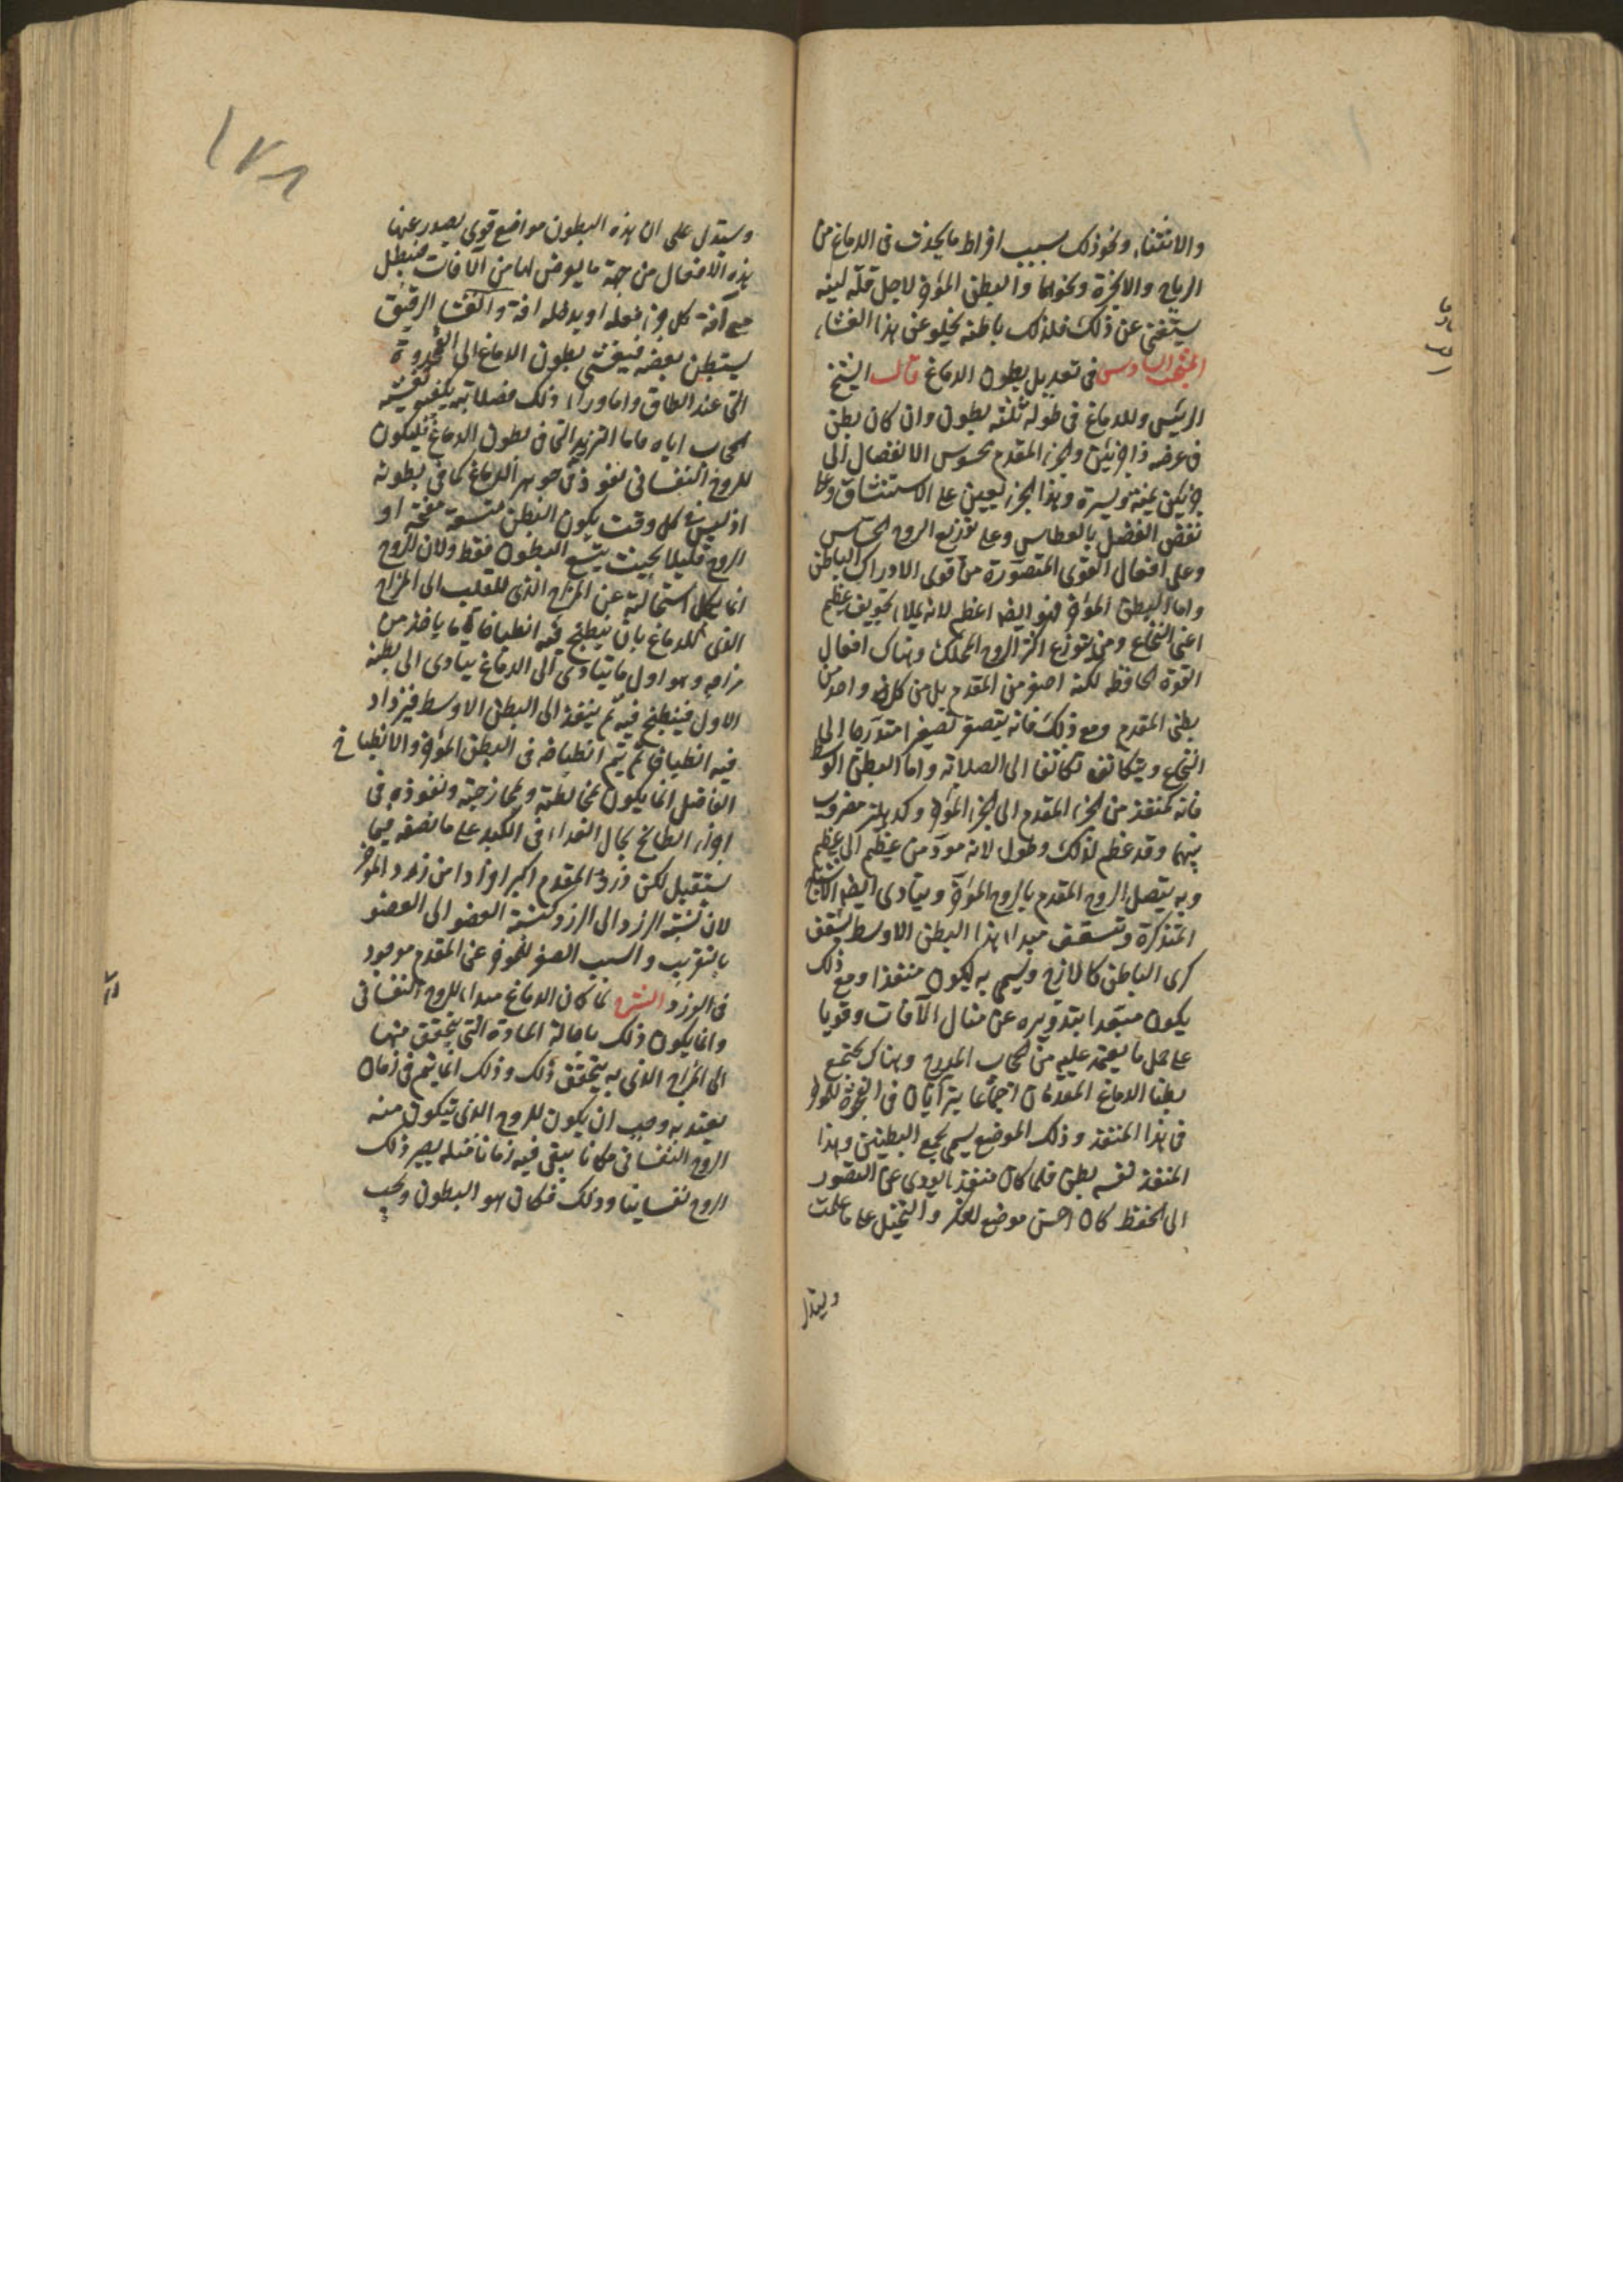 والانثناء ونحو ذلك بسبب افراط ما يحدث فى الدماغ من
الرياح والابخرة ونحوها والبطن المؤخر لاجل قلة لينه
يستغنى عن ذلك فلذلك باطنه يخلو عن هذا الغشاء
المبحث السادس فى تعديل بطون الدماغ قال الشيخ
الرئيس وللدماغ فى طوله ثلثة بطون وان كان كل بطن
فى عرضه ذا جزئين والجزء المقدم محسوس الانفصال الى
جزئين يمنة ويسرة وهذا الجزء يعين على الاستنشاق وعلى
نفض الفضل بالعطاس وعلى توزيع الروح الحساس
وعلى افعال القوى المتصورة من قوى الادراك الباطن
واما البطن المؤخر فهو ايضا عظيم لانه يملا تجويف عظيم
اعنى النخاع ومنه يتوزع اكثر الروح المحرك وهناك افعال
القوة الحافظة لكنه اصغر من المقدم بل من كل واحد من
بطنى المقدم ومع ذلك فانه يتصغر تصغيرا متدرجا الى
النخاع ويتكاثف تكاثفا الى الصلابة واما البطن الوسط
فانه كمنفذ من الجزء المقدم الى الجزء المؤخر وكدهليز مضروب
بينهما وقد عظم لذلك وطول لانه مود من عظيم الى عظيم
وبه يتصل الروح المقدم بالروح المؤخر ويتادى ايضا الاشباح
المتذكرة ويتسقف مبداء هذا البطن الاوسط بسقف
كرى الباطن كالازج ويسمى به ليكون منفذا ومع ذلك
يكون مبتعدا بتدويره عن منال الآفات وقويا
على حمل ما يعتمد عليه من الحجاب المدرج وهناك يجتمع
بطنا الدماغ المقدمان اجتماعا يترآيان للمؤخر
فى هذا المنفذ وذلك الموضع يسمى مجمع البطنين وهذا
المنفذ نفسه بطن فلما كان منفذا يودى عن التصور
الى الحفظ كان احسن موضع للفكر والتخيل على ما علمت
ويستدل
١٧٨
وستدل على ان هذه البطون مواضع قوى يصدر عنها
هذه الافعال من جهة ما يعرض لها من الآفات فيبطل
مع آفة كل جزء فعله او يدخله افة والغشاء الرقيق
يستبطن بعضه فيغشى بطون الدماغ الى الفجوة
التى عند الطاق واما وراء ذلك فصلابته يكفيه تغشية
الحجاب اياه واما التزريد التى فى بطون الدماغ فليكون
للروح النفسانى نفوذ فى جوهر الدماغ كما فى بطونه
اذ ليس فى كل وقت يكون البطن متسعة مفتحة او
الروح قليلا بحيث يسع البطون فقط ولان الروح
انما يكمل استحالته عن المزاج الذى للقلب الى المزاج
الذى للدماغ بان ينطبخ فيه انطباخا ياخذ من
مزاجه وهو اول ما يتادى الى الدماغ يتادى الى بطنه
الاول فينطبخ فيه ثم ينفذ الى البطن الاوسط فيزداد
فيه انطباخا ثم يتم انطباخه فى البطن المؤخر والانطباخ
الفاضل انما يكون بمخالطة وممازجة ونفوذ فى
اجزاء الطابخ كحال الغداء فى الكبد على ما نصفه فيما
يستقبل لكن زرد المقدم اكبر افرادا من زرد المؤخر
لان نسبة الزرد الى الزرد كنسبة العضو الى العضو
بالتقريب والسبب المصغر للمؤخر عن المقدم موجود
فى الزرد الشرح لما كان الدماغ مبداء للروح النفسانى
وانما يكون ذلك باحالة المادة التى يتحقق منها
الى المزاج الذى به يتحقق ذلك وذلك انما يتم فى زمان
يعتد به وجب ان يكون للروح الذى يتكون منه
الروح النفسانى مكانا يبقى فيه زمانا فى مثله يصير ذلك
الروح نفسانيا وذلك المكان هو البطون ويجب